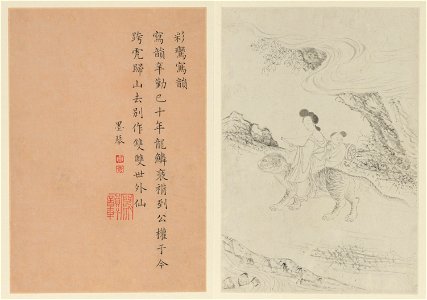 彩鸞寫韻
寫韻辛勤已十年龍鱗公權于今
跨虎歸山去別作雙雙世外仙
墨琴